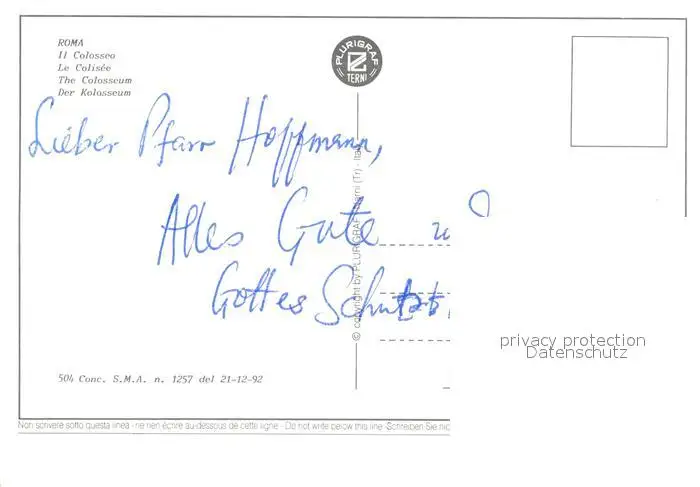 ROMA
Il Colosseo
Le Colisée
The Colosseum
Der Kolosseum
PLURIGRAF
TERNI
Lieber Pfarr Hoffmann,
Alles Gute
Gottes
© copyright by PLURIGRAF Terni (Tr) - Ital
privacy protection
Datenschutz
504 Conc. S.M.A. n. 1257 del 21-12-92
Non scrivere sotto questa linea - ne rien écrire au-dessous de cette ligne - Do not write below this line - Schreiben Sie nic